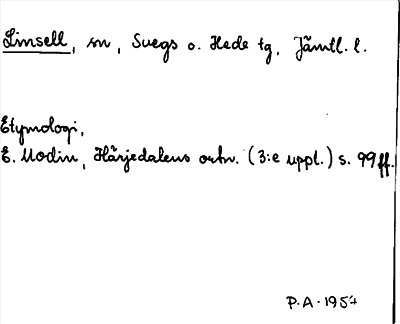 Linsell, sn, Svegs o. Hede tg, Jämtl. l.
Etymologi,
E. Modin, Härjedalens ortn. (3:e uppl.) s. 99 ff.
P.A. 1954